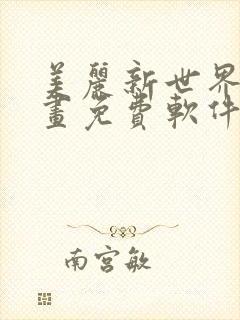 美麗新世界
畫免費軟件
南宮敏